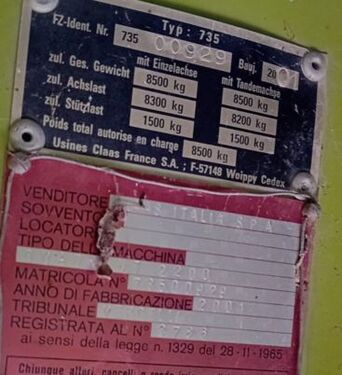 Typ: 735
FZ-Ident. Nr. 735 00929 Bauj. 2001
mit Einzelachse mit Tandemachse
zul. Ges. Gewicht 8500 kg 8500 kg
zul. Achslast 8300 kg 8200 kg
zul. Stützlast 1500 kg 1500 kg
Poids total autorise en charge 8500 kg
Usines Claas France S.A.; F-57148 Woippy Cedex
VENDITORE ITALIA S.P.A.
SOVVENTO
LOCATOR
TIPO DELLA MACCHINA
2200
MATRICOLA N° 73500929
ANNO DI FABBRICAZIONE 2001
TRIBUNALE
REGISTRATA AL N°
ai sensi della legge n. 1329 del 28-11-1965
Chiunque alteri, cancelli o renda